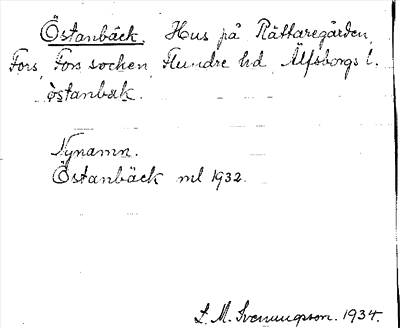 Östanbäck. Hus på Rättaregården,
Fors, Fors socken, Flundre hd, Älfsborgs l.
östanbæk.
Nynamn.
Östanbäck ml 1932.
L. M. Svenungsson. 1934.